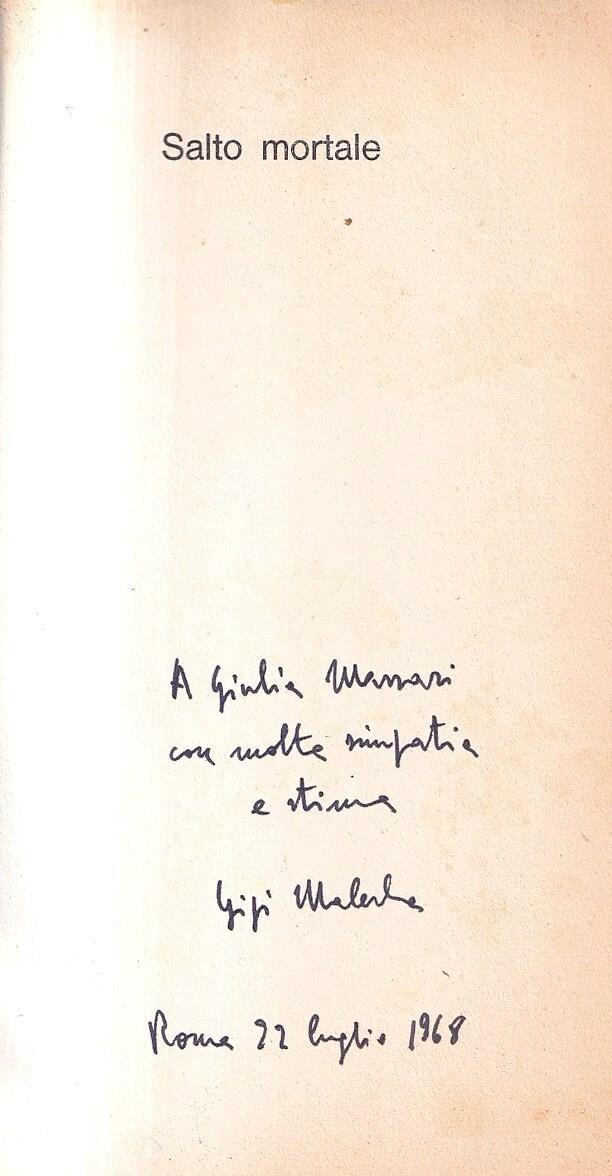 Salto mortale
A Giulia Massari
con molta simpatia
e stima
Gigi Malerba
Roma 22 luglio 1968